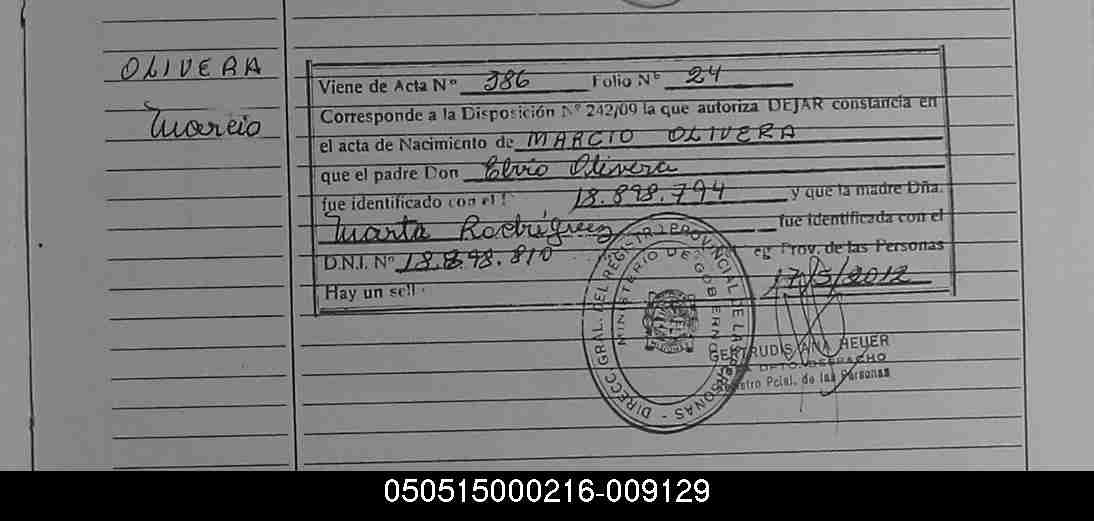 OLIVERA
Marcio
Viene de Acta Nº 386 Folio Nº 24
Corresponde a la Disposición Nº 242/09 la que autoriza DEJAR constancia en
el acta de Nacimiento de MARCIO OLIVERA
que el padre Don Elvio Olivera
fue identificado con el 18.898.794 y que la madre Dña.
Marta Rodríguez fue identificada con el
D.N.I. Nº 18.898.810 eg. Prov. de las Personas
Hay un sell 17/5/2012
DIRECC. GRAL. DEL REGISTRO PROVINCIAL DE LAS PERSONAS -
MINISTERIO DE GOBIERNO
GERTRUDIS ANA HEUER
DPTO. DESPACHO
istro Pcial. de las Personas
050515000216-009129